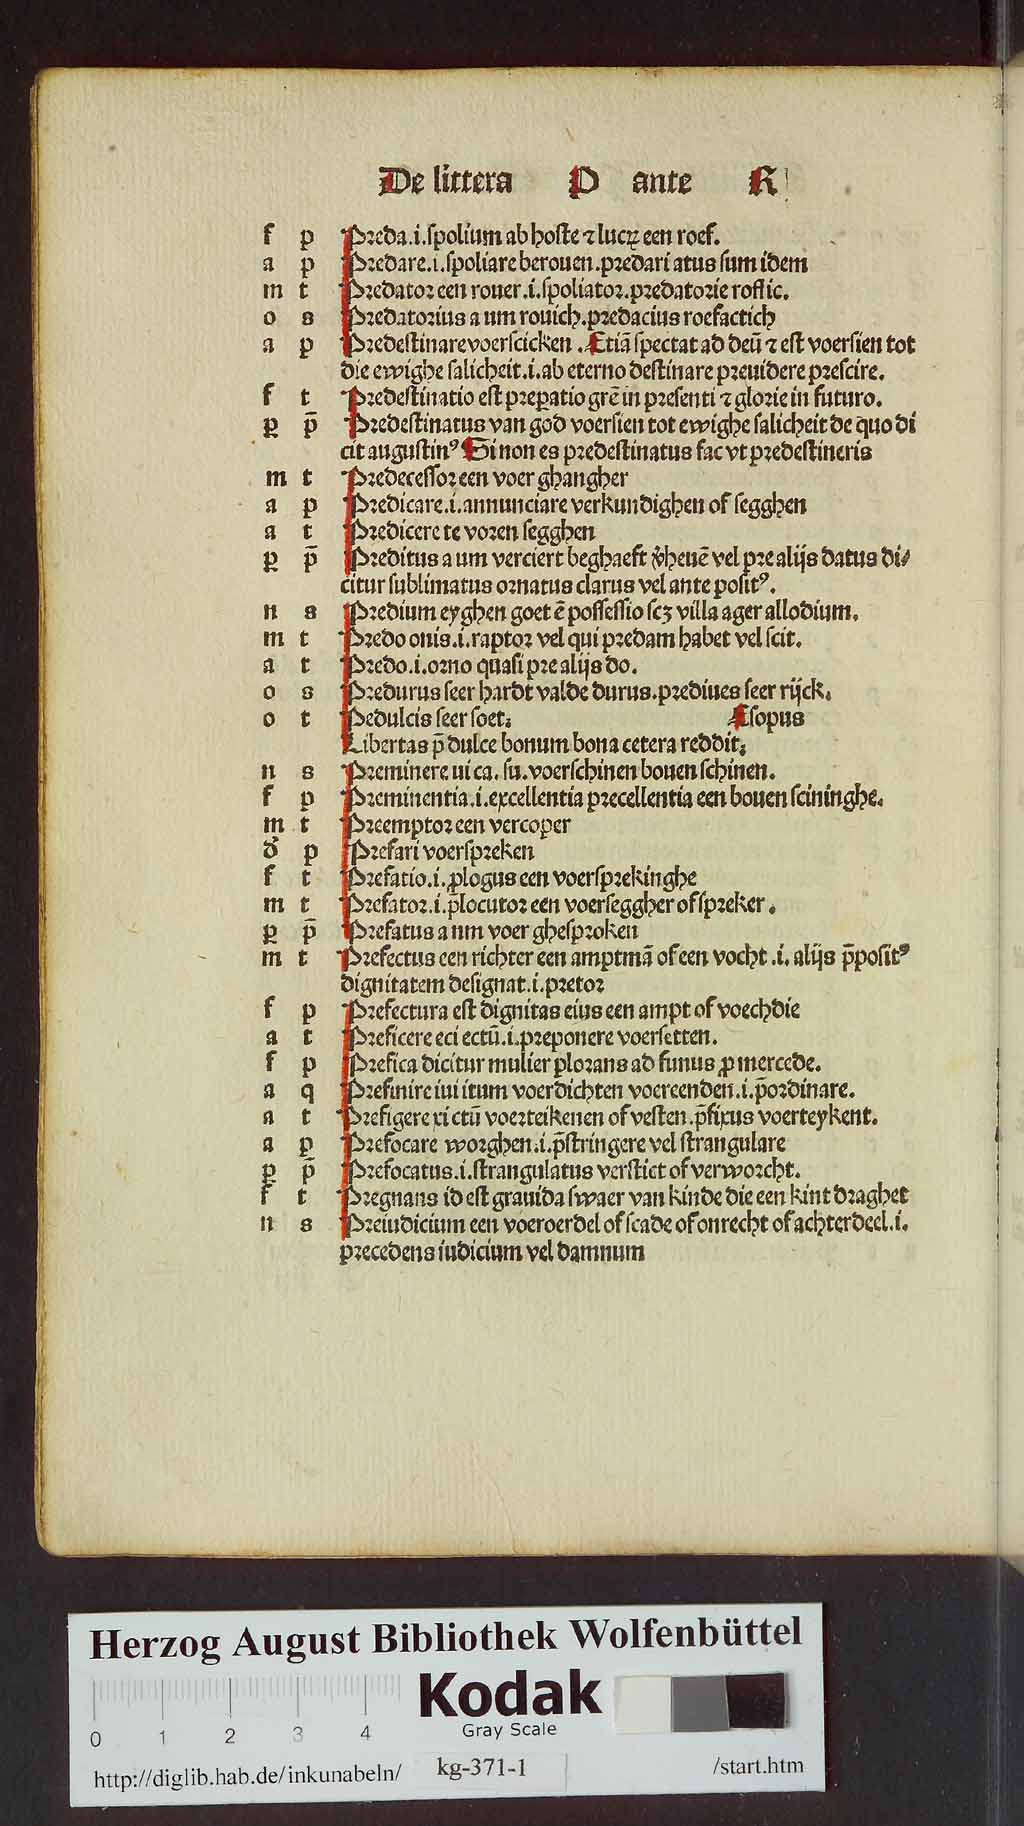 De littera P ante R
f p Preda.i.spolium ab hoste ⁊ lucrꝫ een roef.
a p Predare.i.spoliare berouen.predari atus sum idem
m t Predator een rouer.i.spoliator.predatorie roflic.
o s Predatorius a um rouich.predacius roefactich
a p Predestinare voerscicken. Etiā spectat ad deū ⁊ est voersien tot
die ewighe salicheit.i.ab eterno destinare preuidere prescire.
f t Predestinatio est preꝑatio grē in presenti ⁊ glorie in futuro.
ꝑ p̄ Predestinatus van god voersien tot ewighe salicheit de quo di
cit augustinꝰ Si non es predestinatus fac vt predestineris
m t Predecessor een voer ghangher
a p Predicare.i.annunciare verkundighen of segghen
a t Predicere te voren segghen
ꝑ p̄ Preditus a um verciert beghaeft v̄heuē vel pre alijs datus di⸗
citur sublimatus ornatus clarus vel ante positꝰ.
n s Predium eyghen goet ē possessio scꝫ villa ager allodium.
m t Predo onis.i.raptor vel qui predam habet vel scit.
a t Predo.i.orno quasi pre alijs do.
o s Predurus seer hardt valde durus.prediues seer rijck.
o t Pedulcis seer soet. Esopus
Libertas p̄dulce bonum bona cetera reddit.
n s Preminere ui ca.su.voerschinen bouen schinen.
f p Preminentia.i.excellentia precellentia een bouen scininghe.
m t Preemptor een vercoper
d̕ p Prefari voerspreken
f t Prefatio.i.ꝓlogus een voersprekinghe
m t Prefator.i.p̄locutor een voersegger of spreker.
ꝑ p̄ Prefatus a um voer ghesproken
m t Prefectus een richter een amptmā of een vocht.i.alijs p̄positꝰ
dignitatem designat.i.pretor
f p Prefectura est dignitas eius een ampt of voechdie
a t Preficere eci ectū.i.preponere voersetten.
f p Prefica dicitur mulier plorans ad funus ꝓ mercede.
a q Prefinire iui itum voerdichten voereenden.i.p̄ordinare.
a t Prefigere xi ctū voerteikenen of vesten.p̄fixus voerteykent.
a p Prefocare worghen.i.p̄stringere vel strangulare
ꝑ p̄ Prefocatus.i.strangulatus verstict of verworcht.
f t Pregnans id est grauida swaer van kinde die een kint draghet
n s Preiudicium een voeroerdel of scade of onrecht of achterdeel.i.
precedens iudicium vel damnum
Herzog August Bibliothek Wolfenbüttel
Kodak
Gray Scale
0 1 2 3 4
http://diglib.hab.de/inkunabeln/ kg-371-1 /start.htm